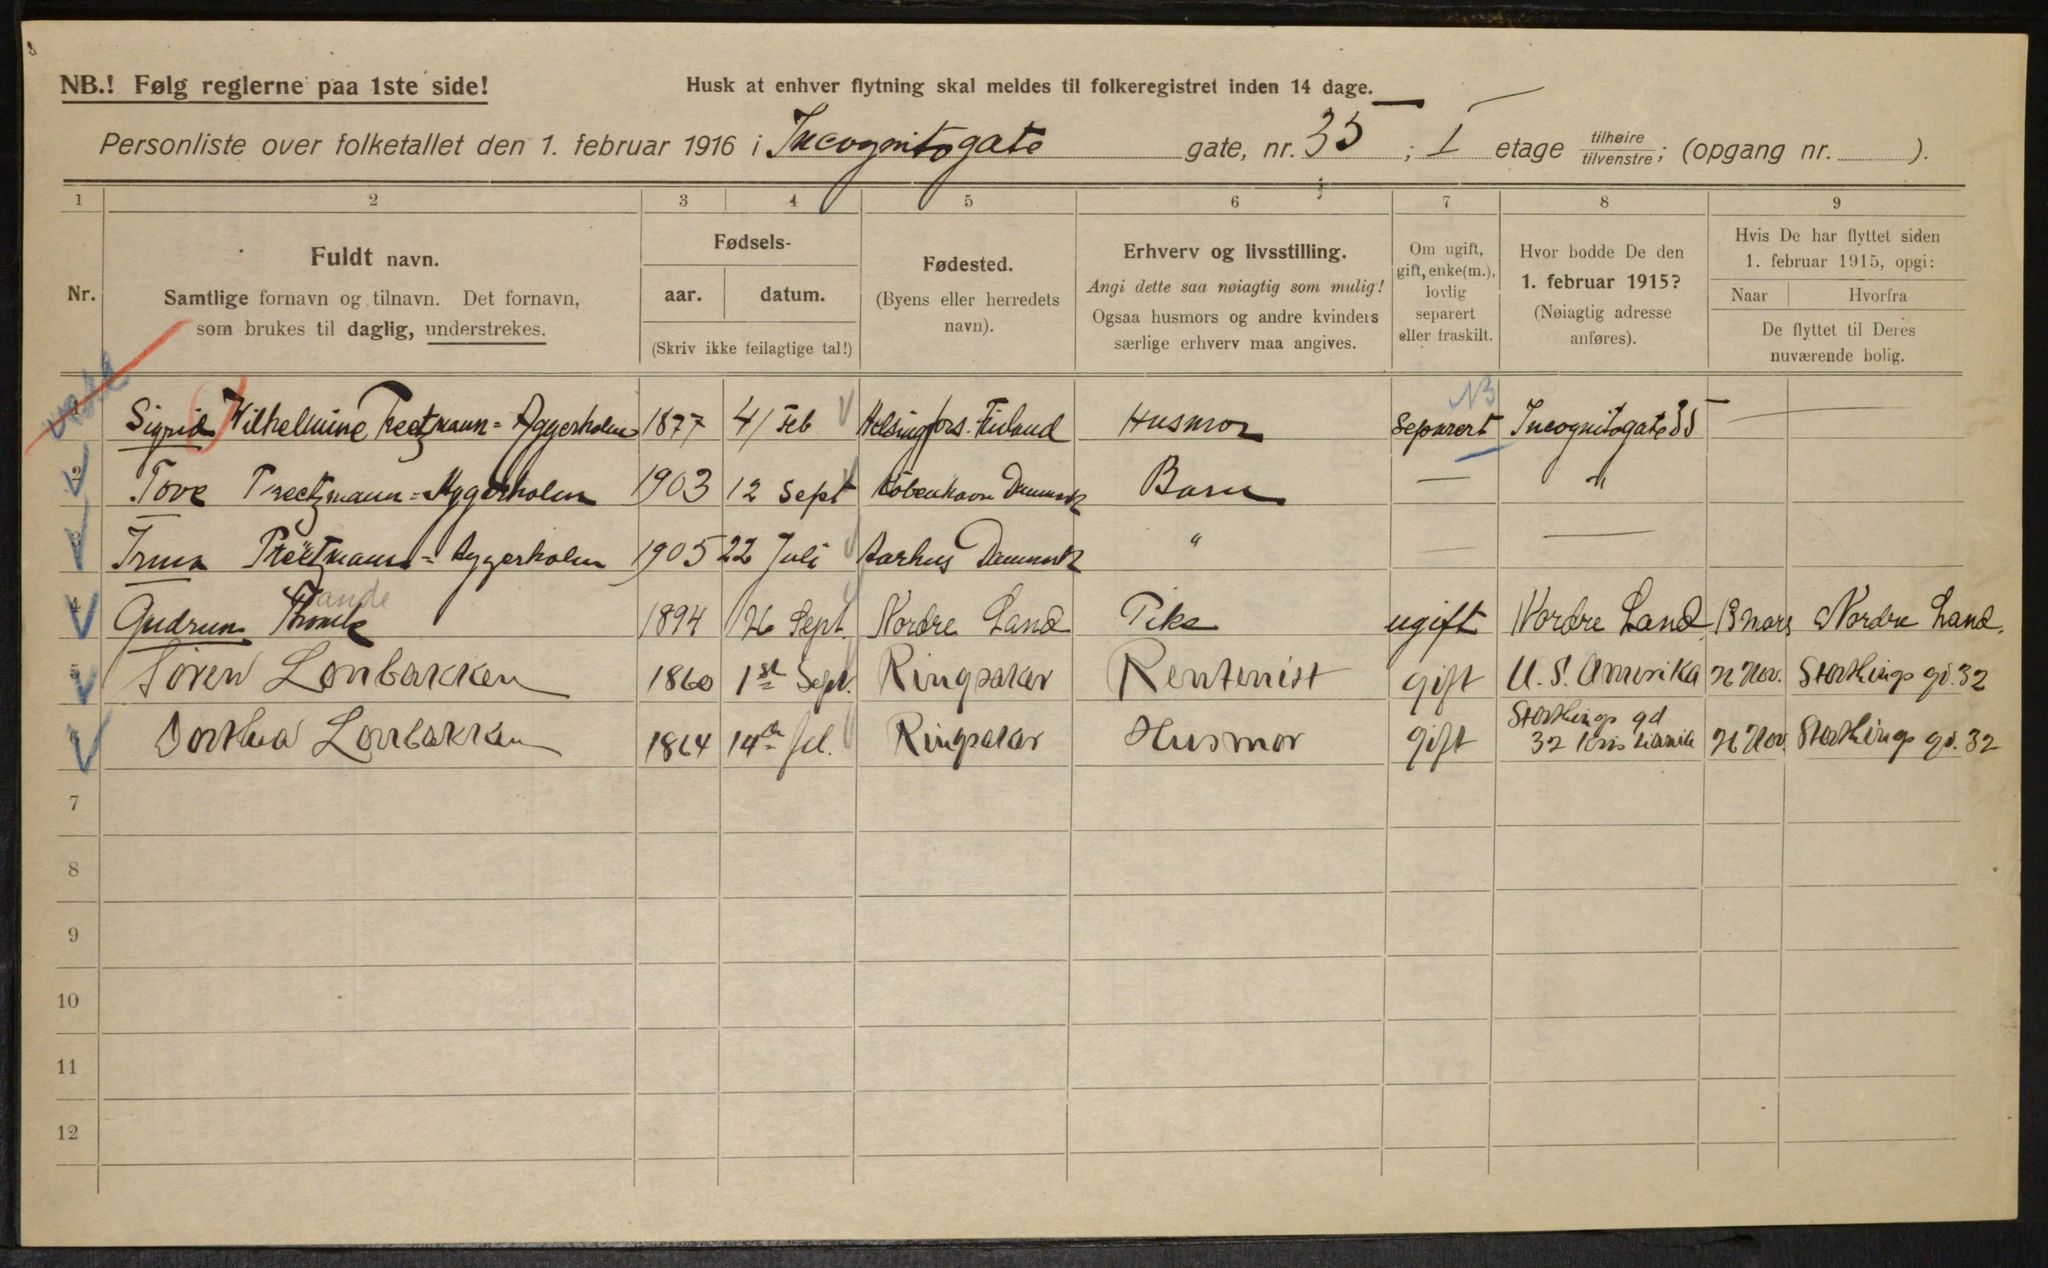 NB.! Følg reglerne paa 1ste side! Husk at enhver flytning skal meldes til folkeregistret inden 14 dage.
Personliste over folketallet den 1. februar 1916 i Incognitogate gate, nr. 35 ; I etage tilhøire tilvenstre; (opgang nr. ).
1 2 3 4 5 6 7 8 9
Nr.
Fuldt navn.
Samtlige fornavn og tilnavn. Det fornavn,
som brukes til daglig, understrekes.
Fødsels-
aar. datum.
(Skriv ikke feilagtige tal!)
Fødested.
(Byens eller herredets
navn).
Erhverv og livsstilling.
Angi dette saa nøiagtig som mulig!
Ogsaa husmors og andre kvinders
særlige erhverv maa angives.
Om ugift,
gift, enke(m.),
lovlig
separert
eller fraskilt.
Hvor bodde De den
1. februar 1915?
(Nøiagtig adresse
anføres).
Hvis De har flyttet siden
1. februar 1915, opgi:
Naar Hvorfra
De flyttet til Deres
nuværende bolig.
NB
1 Sigrid Wilhelmine Treetzmann=Aggerholm 1877 4/ Feb Helsingfors. Finland Husmor Separert Incognitogate 35 —
2 Tove Treetzmann=Aggerholm 1903 12 Sept København Danmark Barn — "
3 Irma Treetzmann=Aggerholm 1905 22 Juli Aarhus Danmark " — —
4 Gudrun 1894 26 Sept. Nordre Land Pike ugift Nordre Land 13 mars Nordre Land.
5 Søren Lonbakken 1860 1st Sept. Ringsaker Rentenist gift U. S. Amerika 26 Nov. Storthings gd. 32
6 Dorthea Lonbakken 1864 14de fel. Ringsaker Husmor gift Storthings gd 32 Kristiania 26 Nov. Storthings gd. 32
7
8
9
10
11
12